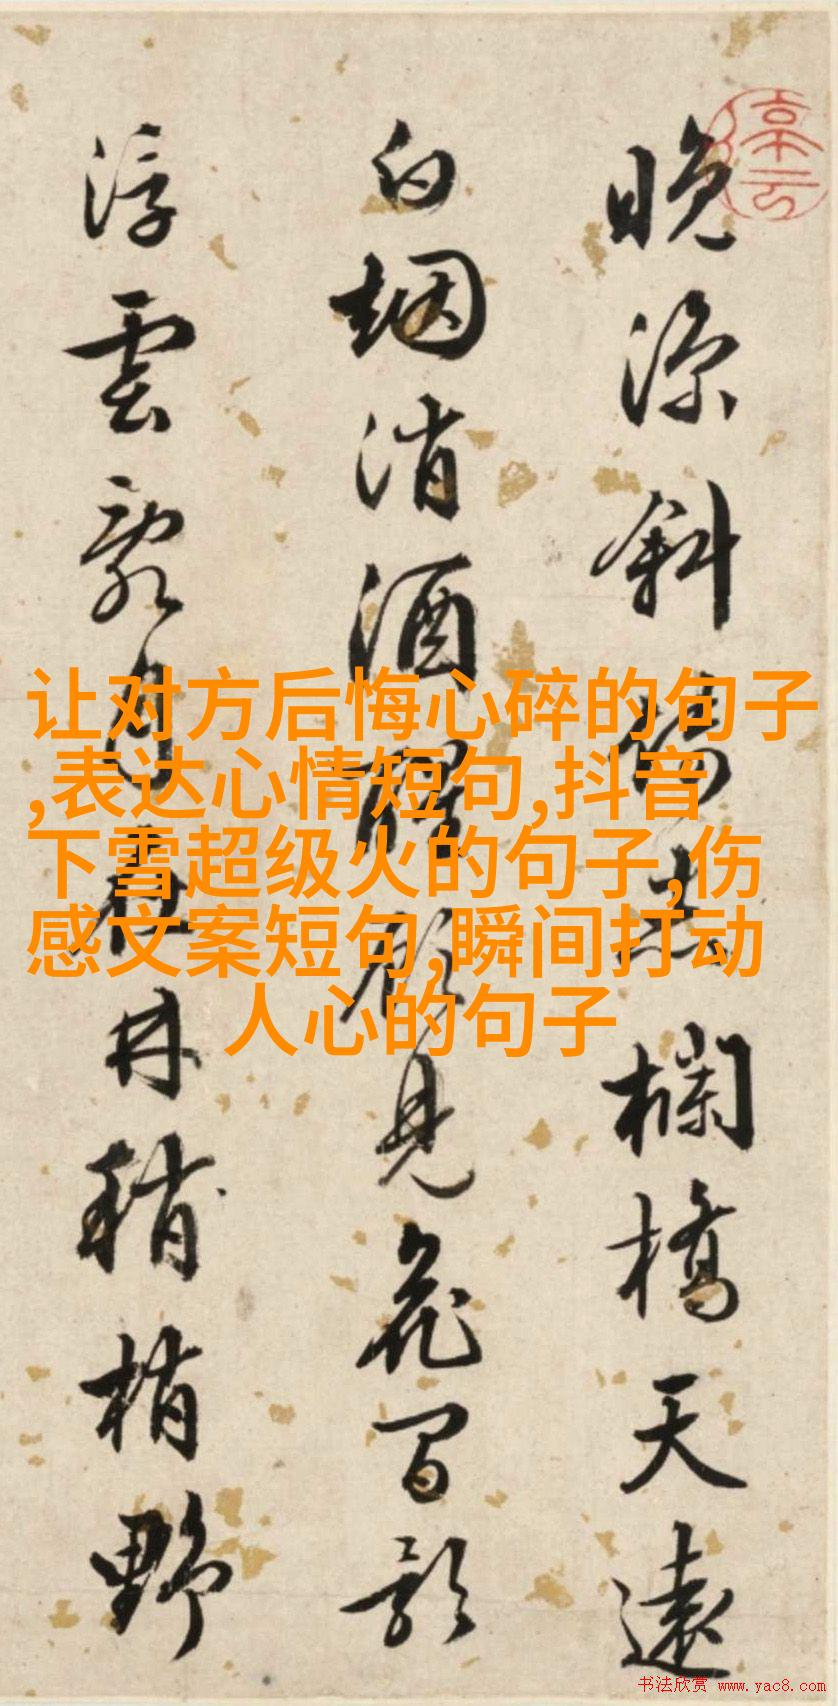 晚涼斜倚赤欄橋天遠
白烟消酒醒見花間影
浮雲月在林梢野
让对方后悔心碎的句子
,表达心情短句,抖音
下雪超级火的句子,伤
感文案短句,瞬间打动
人心的句子
书法欣赏 www.yac8.com